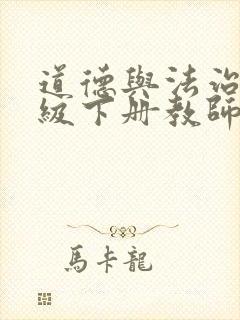 道德與法治
級下册教師
馬卡龍